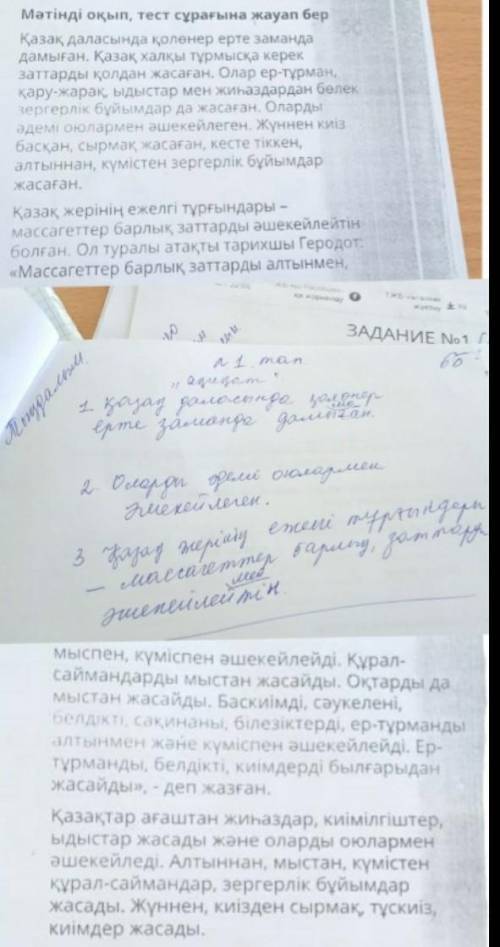 Мәтінді оқып, тест сұрағына жауап бер
Қазақ даласында қолөнер ерте заманда
дамыған. Қазақ халқы тұрмысқа керек
заттарды қолдан жасаған. Олар ер-тұрман,
қару-жарақ, ыдыстар мен жиһаздардан бөлек
зергерлік бұйымдар да жасаған. Оларды
әдемі оюлармен әшекейлеген. Жүннен киіз
басқан, сырмақ жасаған, кесте тіккен,
алтыннан, күмістен зергерлік бұйымдар
жасаған.
Қазақ жерінің ежелгі тұрғындары –
массагеттер барлық заттарды әшекейлейтін
болған. Ол туралы атақты тарихшы Геродот:
«Массагеттер барлық заттарды алтынмен,
ЗАДАНИЕ №1
Тыңдалым
№1. тап
6б
"ақиқат"
1. Қазақ даласында қолөнер
ерте заманда дамыған.
2. Оларды әдемі оюлармен
әшекейлеген.
3 Қазақ жерінің ежелгі тұрғындары
– массагеттер барлық заттарды
әшекейлейтін.
мыспен, күміспен әшекейлейді. Құрал-
саймандарды мыстан жасайды. Оқтарды да
мыстан жасайды. Баскиімді, сәукелені,
белдікті, сақинаны, білезіктерді, ер-тұрманды
алтынмен және күміспен әшекейлейді. Ер-
тұрманды, белдікті, киімдерді былғарыдан
жасайды», - деп жазған.
Қазақтар ағаштан жиһаздар, киімілгіштер,
ыдыстар жасады және оларды оюлармен
әшекейледі. Алтыннан, мыстан, күмістен
құрал-саймандар, зергерлік бұйымдар
жасады. Жүннен, киізден сырмақ, тұскиіз,
киімдер жасады.